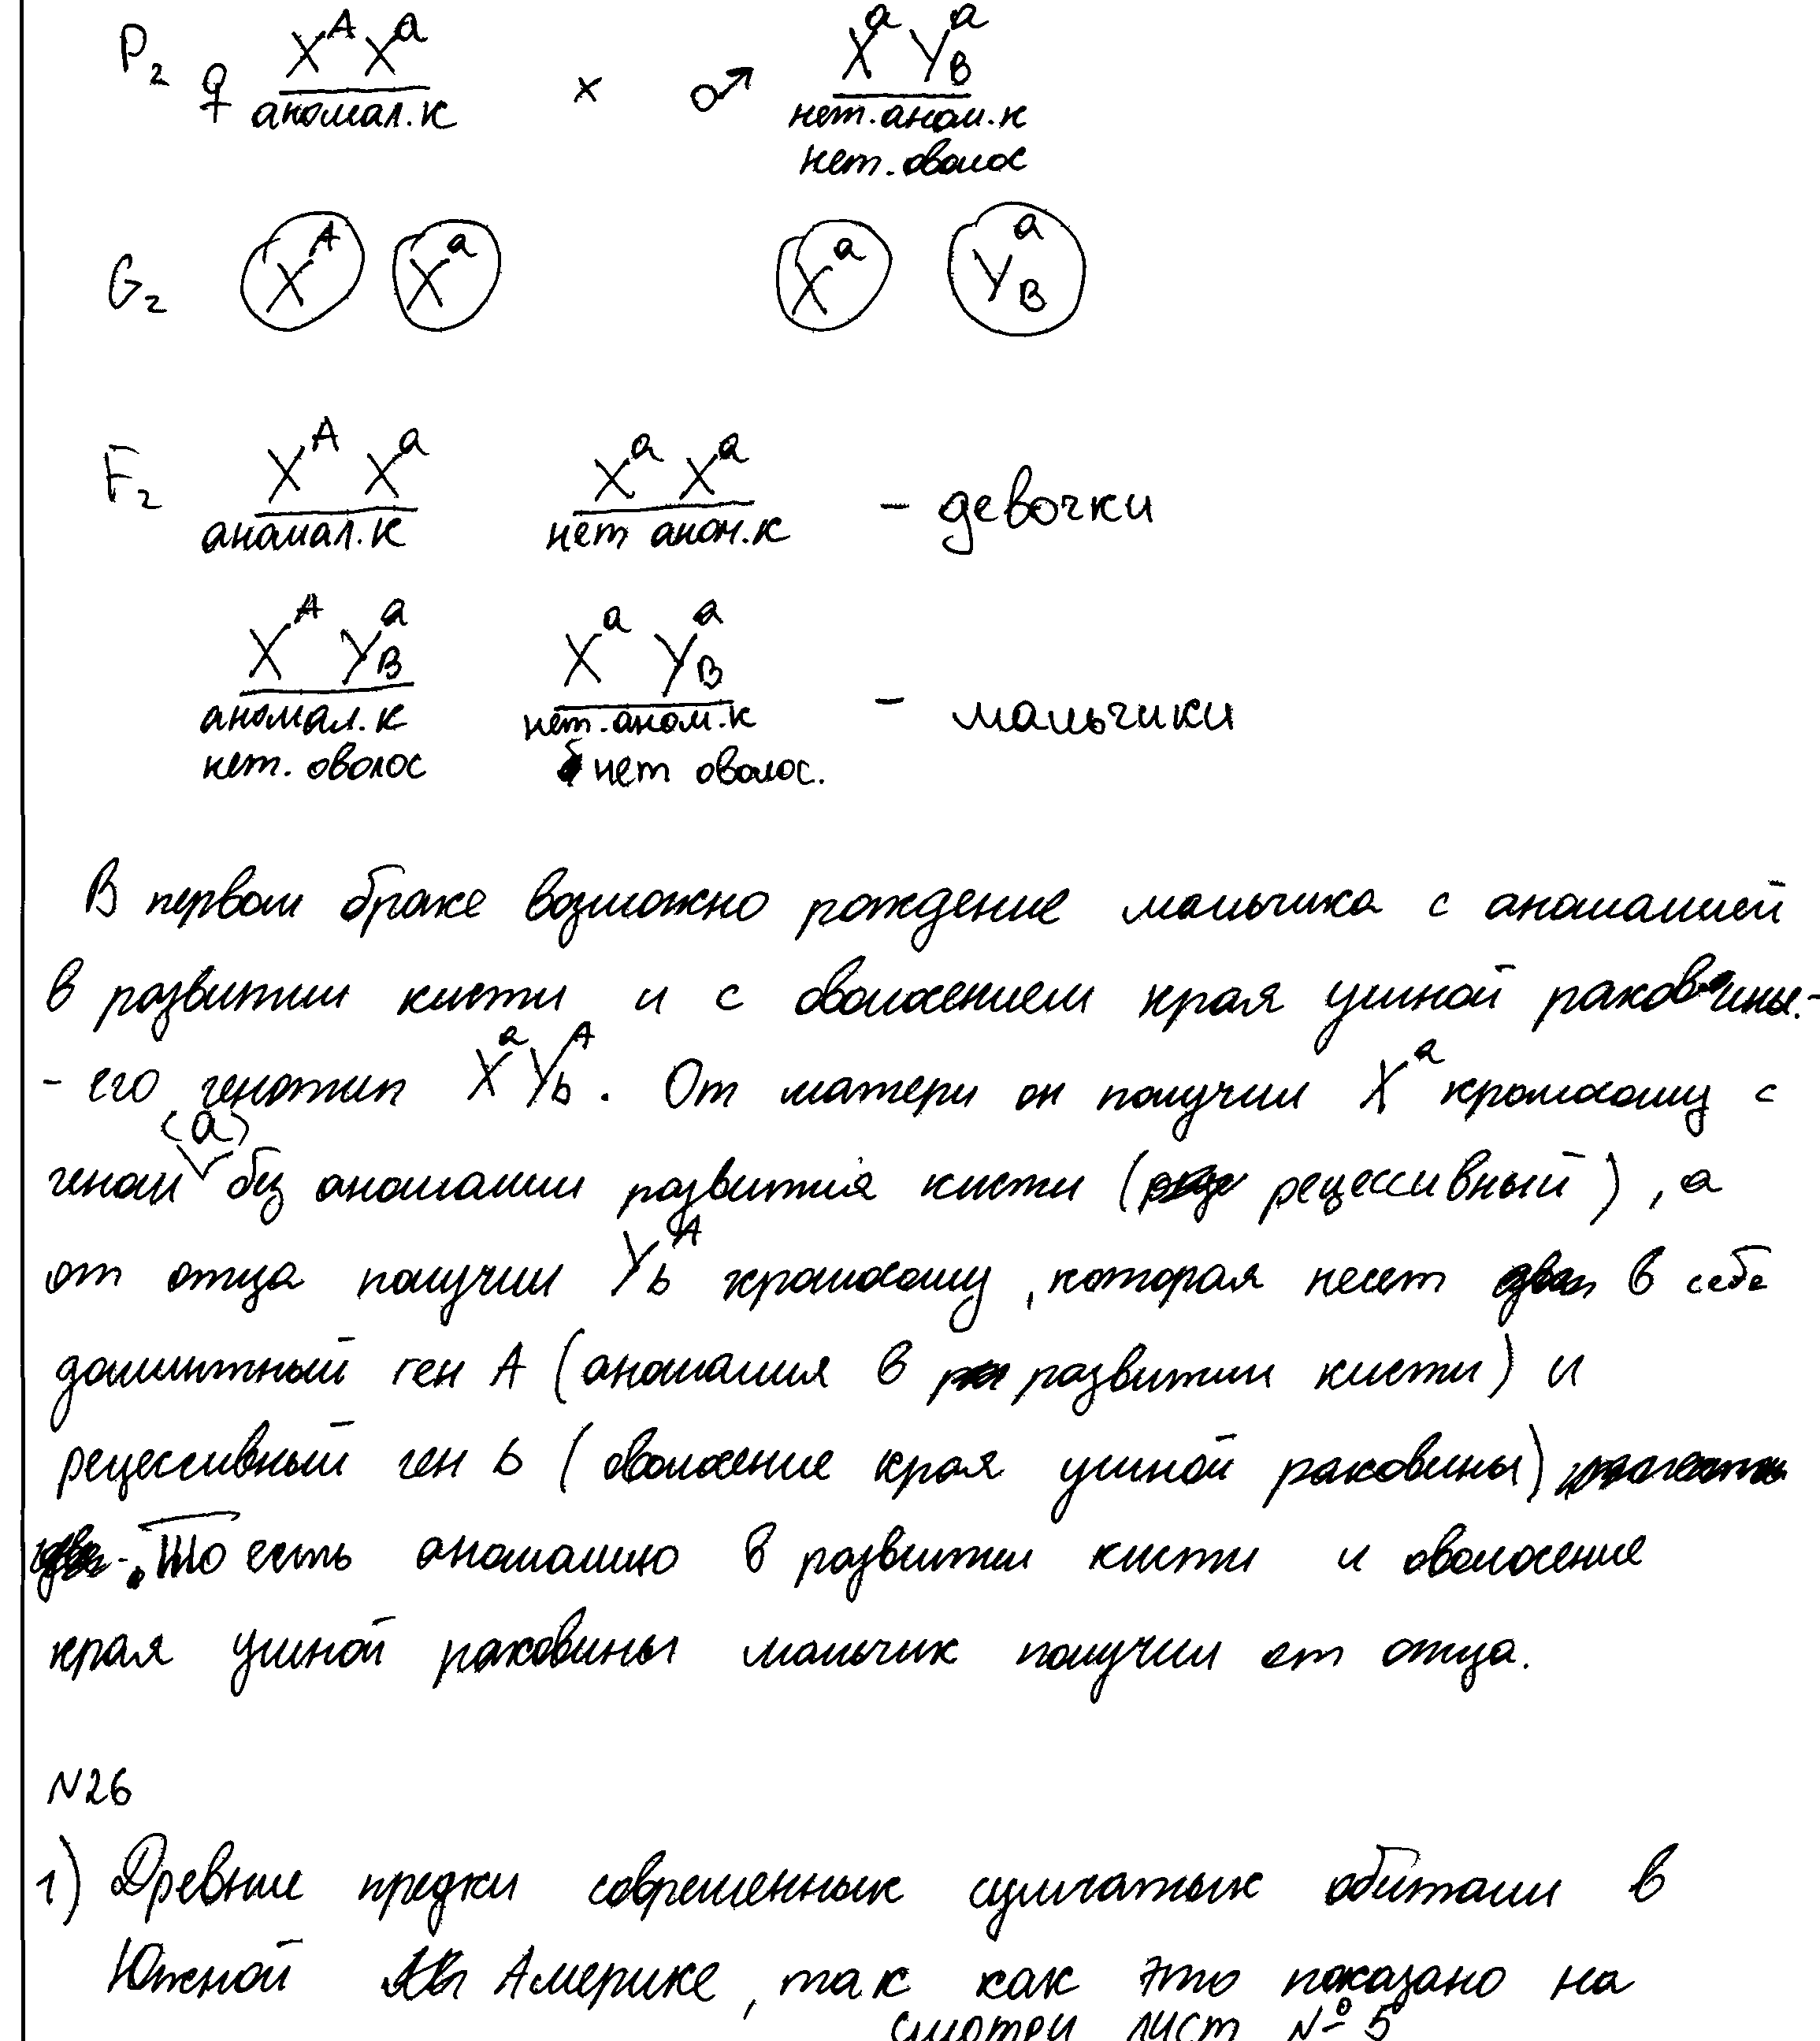 P₂ ♀ XᴬXᵃ × ♂ XᵃYᵃ_B
аномал.к нет.аном.к
нет.оволос
G₂ Xᴬ Xᵃ Xᵃ Yᵃ_B
F₂ Xᴬ Xᵃ Xᵃ Xᵃ - девочки
аномал.к нет аном.к
Xᴬ Yᵃ_B Xᵃ Yᵃ_B - мальчики
аномал.к нет.аном.к
нет. оволос нет оволос.
В первом браке возможно рождение мальчика с аномалией
в развитии кисти и с оволосением края ушной раковины.-
- его генотип XᵃYᴬ_b. От матери он получил Xᵃ хромосому с
геном (a) без аномалии развития кисти (рецессивный), а
от отца получил Yᴬ_b хромосому, которая несет в себе
доминтный ген А (аномалия в развитии кисти) и
рецессивный ген b (оволосение края ушной раковины)
. То есть аномалию в развитии кисти и оволосение
края ушной раковины мальчик получил от отца.
N26
1) Древние предки современных сумчатых обитали в
Южной Америке, так как это показано на
смотри лист № 5